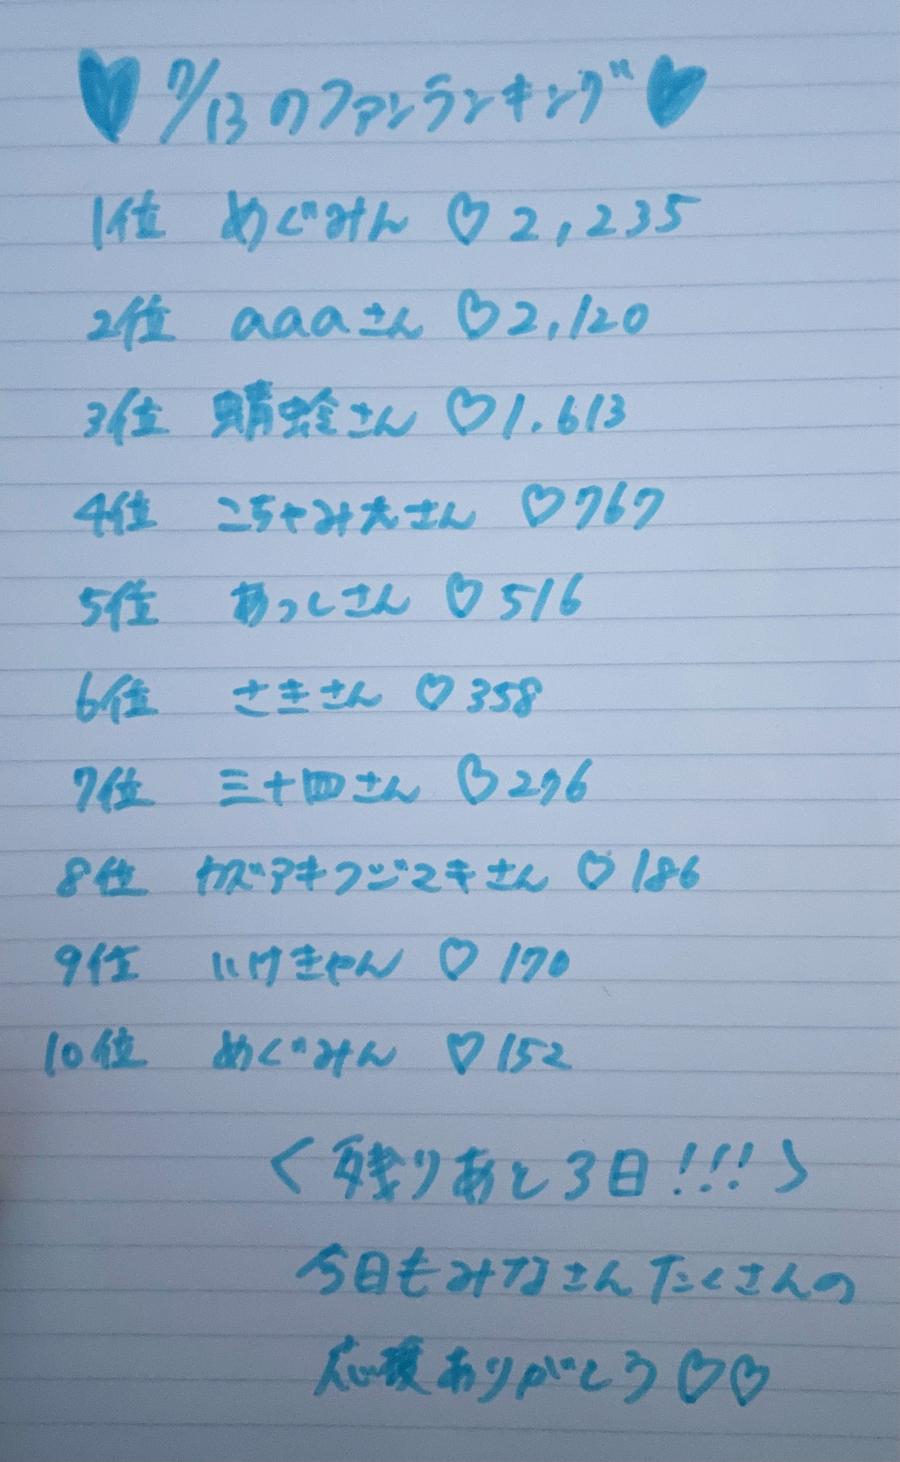 ♥ 7/13のファンランキング ♥
1位 めぐみん ♡2,235
2位 aaaさん ♡2,120
3位 蜻蛉さん ♡1.613
4位 こちゃみ夫さん ♡767
5位 あっしさん ♡516
6位 さきさん ♡358
7位 三十四さん ♡276
8位 カズアキフジマキさん ♡186
9位 いけきゃん ♡170
10位 めぐみん ♡152
〈残りあと3日!!!〉
今日もみなさんたくさんの
応援ありがとう♡♡